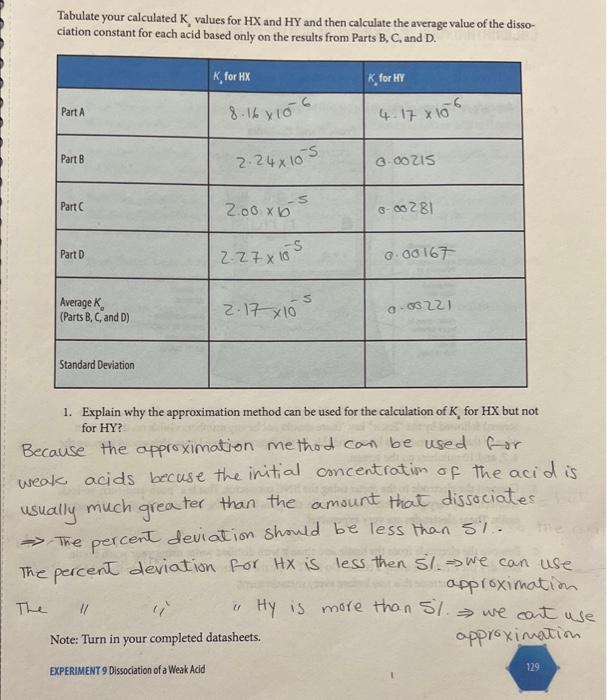 Tabulate your calculated Kₐ values for HX and HY and then calculate the average value of the disso-
ciation constant for each acid based only on the results from Parts B, C, and D.
Kₐ for HX Kₐ for HY
Part A 8.16 x 10⁻⁶ 4.17 x 10⁻⁶
Part B 2.24 x 10⁻⁵ 0.00215
Part C 2.00 x 10⁻⁵ 0.00281
Part D 2.27 x 10⁻⁵ 0.00167
Average Kₐ
(Parts B, C, and D) 2.17 x 10⁻⁵ 0.00221
Standard Deviation
1. Explain why the approximation method can be used for the calculation of Kₐ for HX but not
for HY?
Because the approximation method can be used for
weak acids becuse the initial concentration of the acid is
usually much greater than the amount that dissociates
⇒ The percent deviation should be less than 5%.
The percent deviation for HX is less then 5%. ⇒ we can use
approximation
The " " " Hy is more than 5%. ⇒ we cant use
approximation
Note: Turn in your completed datasheets.
EXPERIMENT 9 Dissociation of a Weak Acid 129